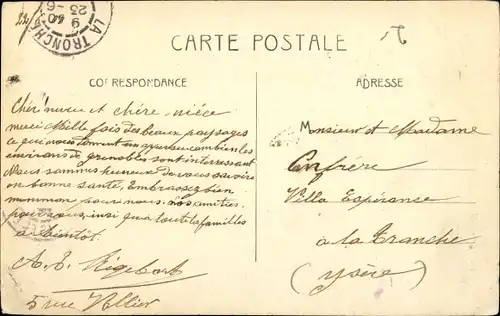 LA TRONCHE
9 40
23-6
CARTE POSTALE
CORRESPONDANCE
ADRESSE
Chèr neveu et chère-niéce
merci Mille fois des beaux paysages
ce qui nous donnent un apersu combien les
environs de grenobles sont interressant
Nous sommes heureux de vous savoire
en bonne santé, Embrassez bien
mommon pour nous. nos amities
pour vous, insi qua toute la familles
a bientôt.
A. E.
5 rue
Monsieur et Madame
Confrère
Villa Espéranse
à la Tranche
(Ysère)